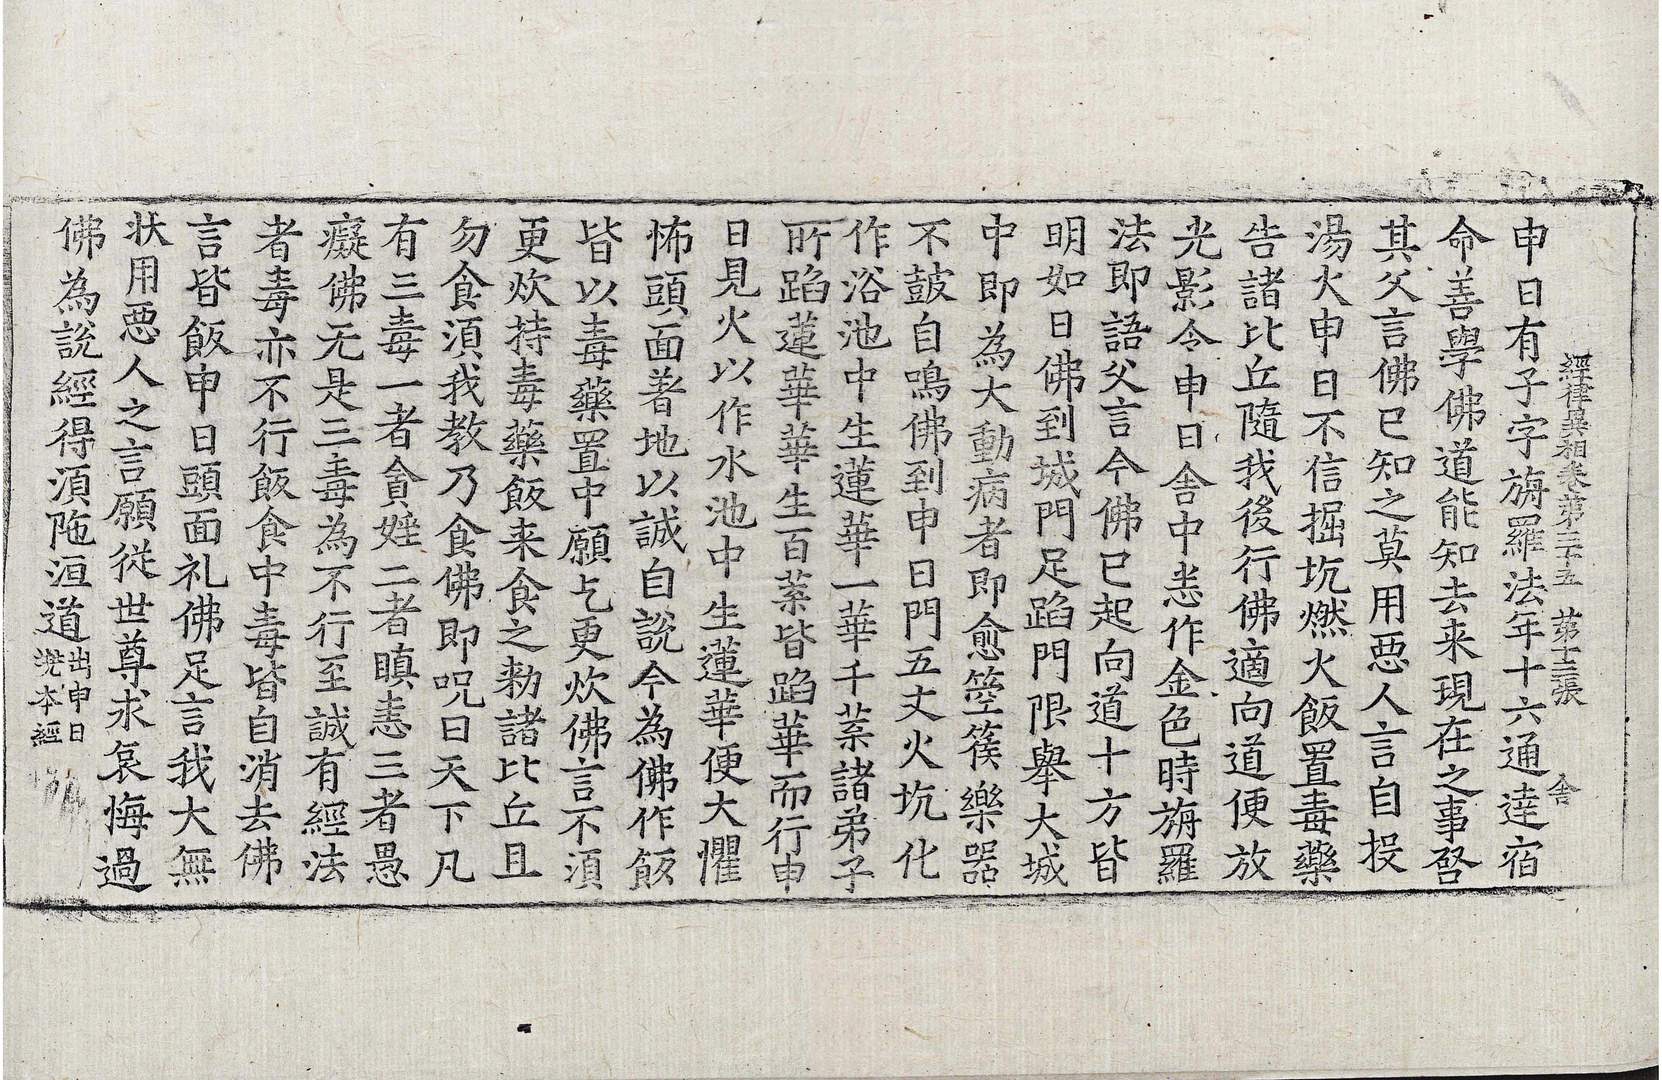 經律異相卷第三十五　第十三張　舍
申日有子字旃羅法年十六通達宿
命善學佛道能知去来現在之事啓
其父言佛已知之莫用惡人言自投
湯火申日不信掘坑燃火飯置毒藥
告諸比丘隨我後行佛適向道便放
光影令申日舍中悉作金色時旃羅
法即語父言今佛已起向道十方皆
明如日佛到城門足蹈門限舉大城
中即為大動病者即愈箜篌樂器
不鼓自鳴佛到申日門五丈火坑化
作浴池中生蓮華一華千葉諸弟子
所蹈蓮華華生百葉皆蹈華而行申
日見火以作水池中生蓮華便大懼
怖頭面著地以誠自說今為佛作飯
皆以毒藥置中願乞更炊佛言不湏
更炊持毒藥飯来食之勑諸比丘且
勿食湏我教乃食佛即呪曰天下凡
有三毒一者貪婬二者瞋恚三者愚
癡佛无是三毒為不行至誠有經法
者毒亦不行飯食中毒皆自消去佛
言皆飯申日頭面礼佛足言我大無
状用惡人之言願從世尊求哀悔過
佛為說經得湏陁洹道出申日
兠本經